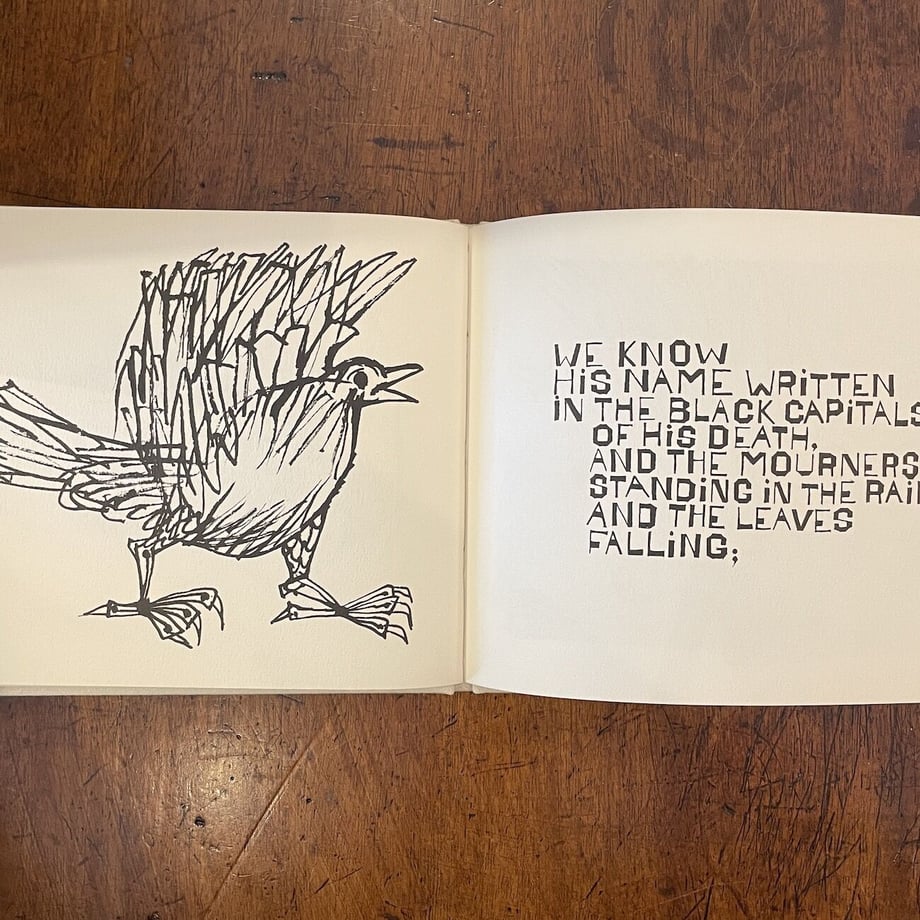 WE KNOW
HiS NAME WRiTTEN
iN THE BLACK CAPiTALS
OF HiS DEATH,
AND THE MOURNERS
STANDiNG iN THE RAiN
AND THE LEAVES
FALLiNG;